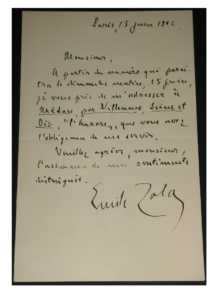 Paris, 13 juin 1902
Monsieur,
A partir du numéro qui paraî
tra le dimanche matin, 15 juin,
je vous prie de m'adresser à
Médan, par Villennes, Seine et
Oise, "l'Aurore", que vous avez
l'obligeance de me servir.
Veuillez agréer, monsieur,
l'assurance de mes sentiments
distingués.
Emile Zola